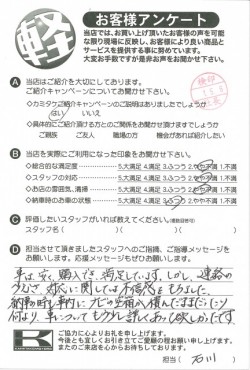 軽
お客様アンケート
当店では、お買い上げ頂いたお客様の声を可能
な限り現場に反映し、お客様により良い商品と
サービスを提供する事に努めています。
大変お手数ですが是非お声をお聞かせ下さい。
A 当店はご紹介を大切にしております。
ご紹介キャンペーンについてお聞かせ下さい。
◇カミタケご紹介キャンペーンのご説明はありましたでしょうか
はい いいえ
◇具体的にご紹介頂ける方とのご関係をお聞かせ頂けますでしょうか
ご親族 ご友人 職場の方 機会があれば紹介したい
B 当店を実際にご利用になった印象をお聞かせ下さい。
◇総合的な満足度 5.大満足 4.満足 3.ふつう 2.やや不満 1.不満
◇スタッフの対応 5.大満足 4.満足 3.ふつう 2.やや不満 1.不満
◇お店の雰囲気、清掃 5.大満足 4.満足 3.ふつう 2.やや不満 1.不満
◇納車時のお車の状態 5.大満足 4.満足 3.ふつう 2.やや不満 1.不満
C 評価したいスタッフがいれば教えてください。(複数回答可)
スタッフ名( )( )( )
D 担当させて頂きましたスタッフへのご指摘、ご指導メッセージをお
願いします。応援メッセージもぜひお願いします
車は安く購入でき、満足しています。しかし、連絡の
対応に関しては不信感をもちました。
納車の時に車内にナビの空箱が積んだままだったり
何より、車についてもう少し詳しくあって欲しかったです
K
ご協力に心よりお礼を申し上げます。
今後とも宜しくお引き立てご愛顧の程お願い申し上げます。
またのご来店を心からお待ちしております。
担当( 石川 )